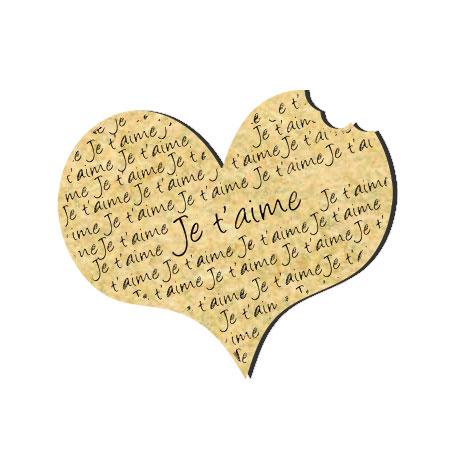 Je t'
Je t'aime Je t'ai
Je t'aime Je t'aime
Je t'aime Je t'aime Je t'ai
me Je t'aime Je t'aime Je t'aime
Je t'aime Je t'aime
Je t'aime
ime Je t'aime Je t'aime
me Je t'aime Je t'aime
Je t'aime Je t'aime Je t'aime
t'aime Je t'aime Je t'aime Je t'aime
t'aime Je t'aime
Je t'aim
ime
Je